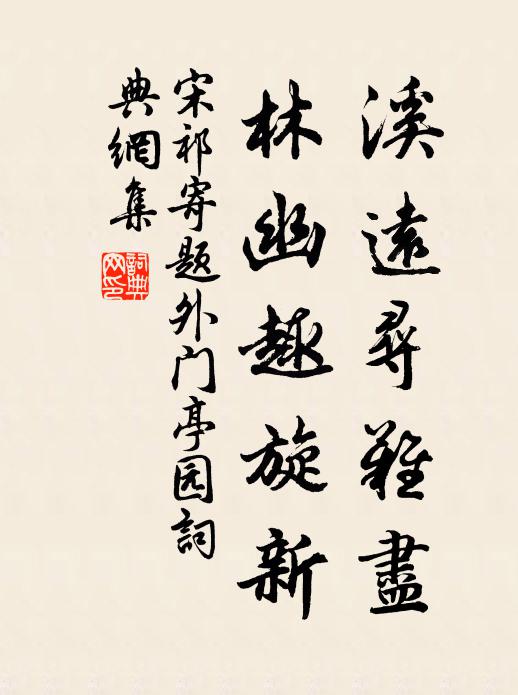 溪遠尋難盡
林幽趣旋新
宋祁寄題外门亭园詞
典網集
詞典
网印